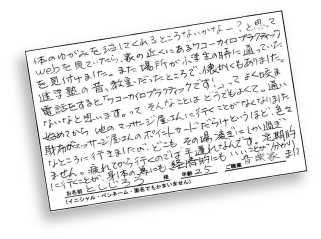 体のゆがみを治してくれるところないかな〜？と思って
webを見ていたら、家の近くにあるワコーカイロプラクティック
を見付けました。また場所が小学生の時に通っていた
進学塾の昔、教室だったところで、懐かくもありました。
電話をすると「ワコーカイロプラクティックです！」って よく咬ま
ないなと思います。って そんなことはどうでもよくて。通い
始めてから 他のマッサージ屋さんに行くことがなくなりました
財布がマッサージ屋さんのポイントカードだらけというほど、色々
なところに行きましたが、どこも その場凌ぎにしか過ぎ
ません。疲れてから行くのでは手遅れなんです。定期的
に行くことが、身体の為にも経済的にもいいことが分かり
お名前 としじろう 様 年齢 25 ご職業 音楽家 ました
(イニシャル・ペンネーム・匿名でもかまいません)